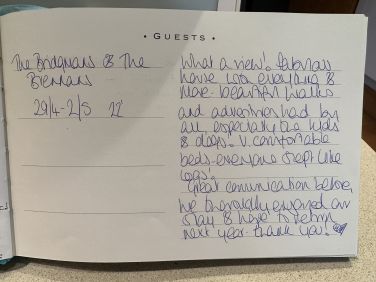 • GUESTS •
The Bridgmans & The
Brennans
29/4-2/5 22'
What a view! Fabulous
house with everything &
more- beautiful walks
and adventures had by
all, especially the kids
& dogs! V. comfortable
beds- everyone slept like
logs!
Great communication before,
we thoroughly enjoyed our
stay & hope to return
next year. Thank you!